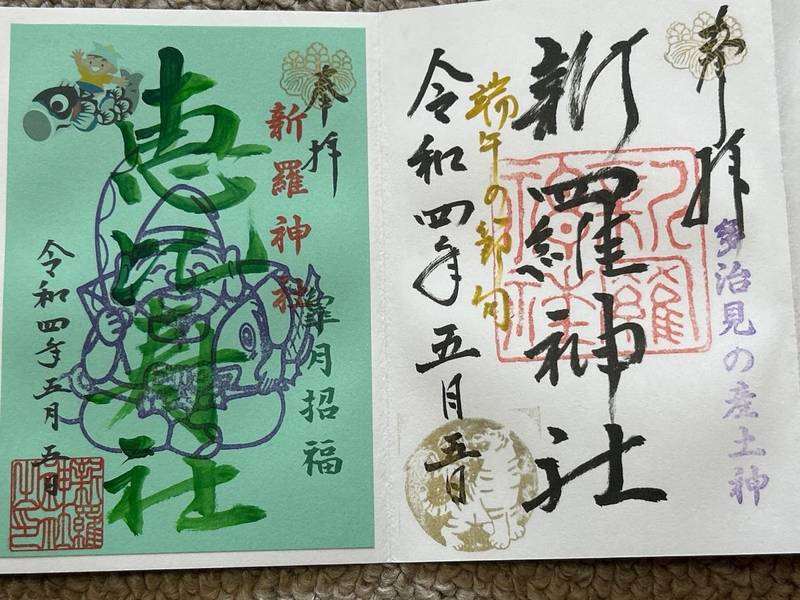 奉拝
多治見の産土神
新羅神社
端午の節句
令和四年五月五日
奉拝
新羅神社
皐月招福
恵比寿社
令和四年五月五日